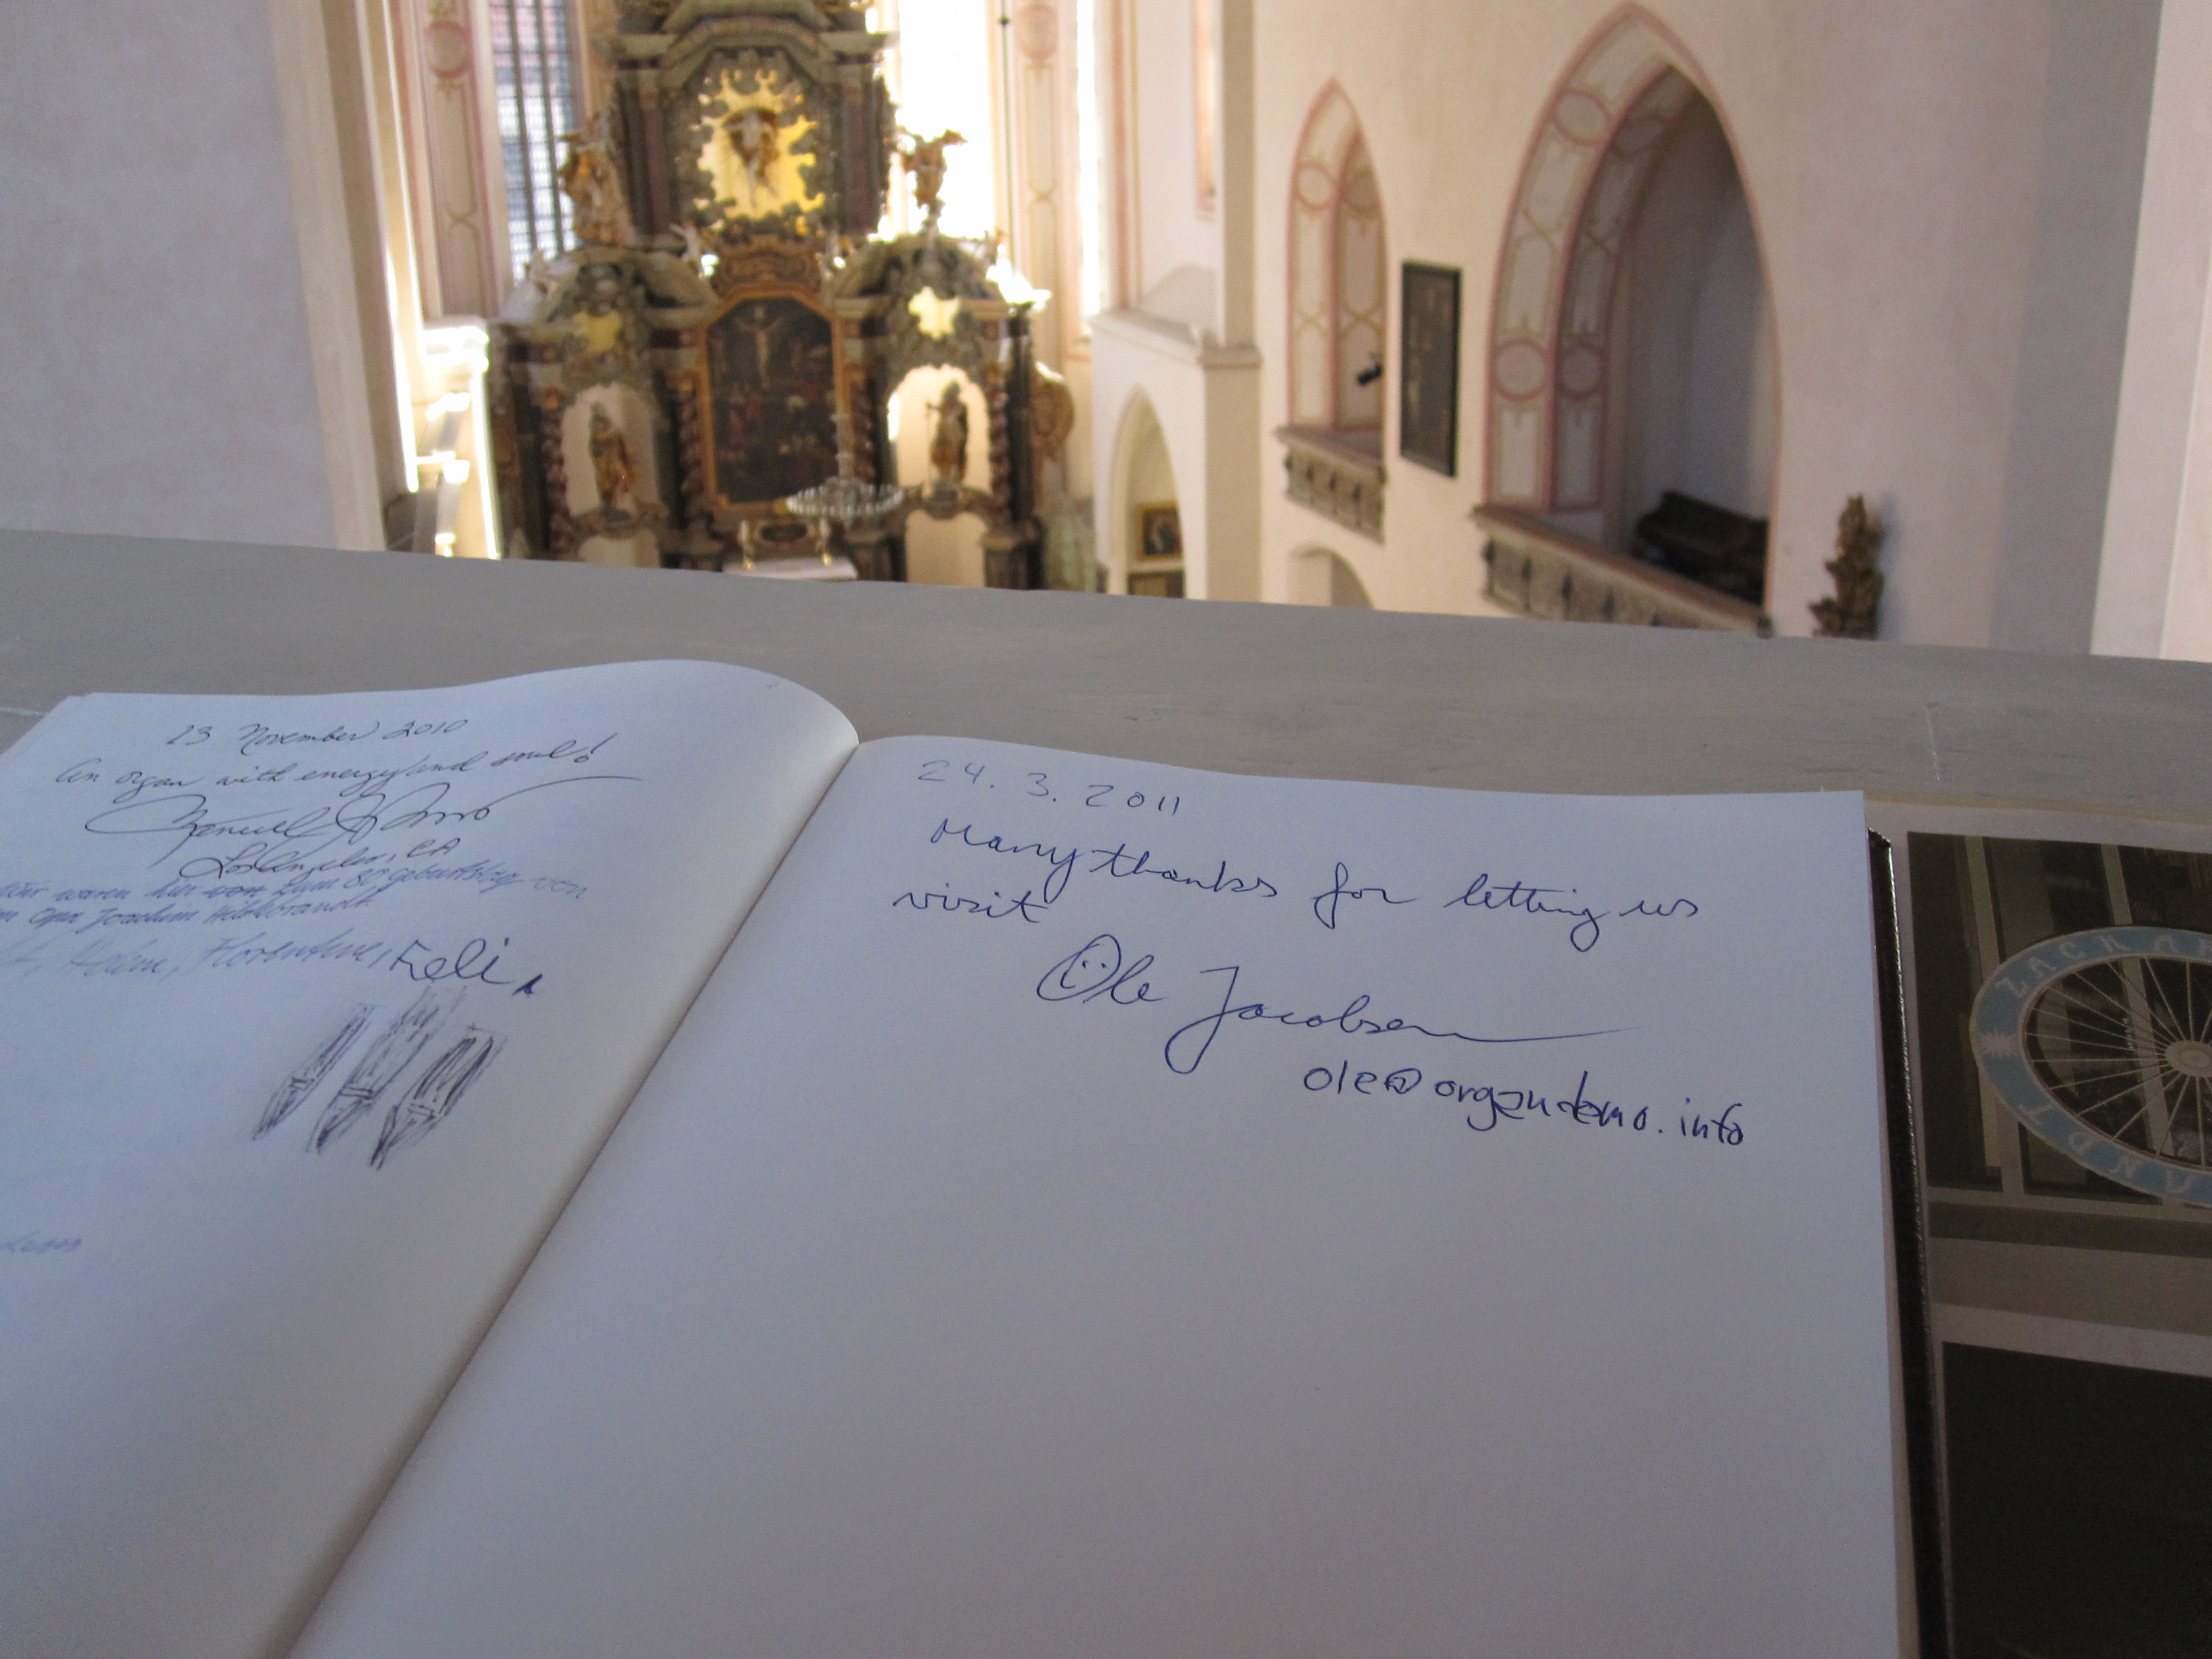 23 November 2010
An organ with energy and soul!
Los Angeles, CA
wir waren hier von zum 80. geburtstag von
Opa Joachim Hildebrandt
Florentine, Feli,
24. 3. 2011
Many thanks for letting us
visit
Ole Jacobsen
ole@organdemo.info
ZACHAR
ANDT